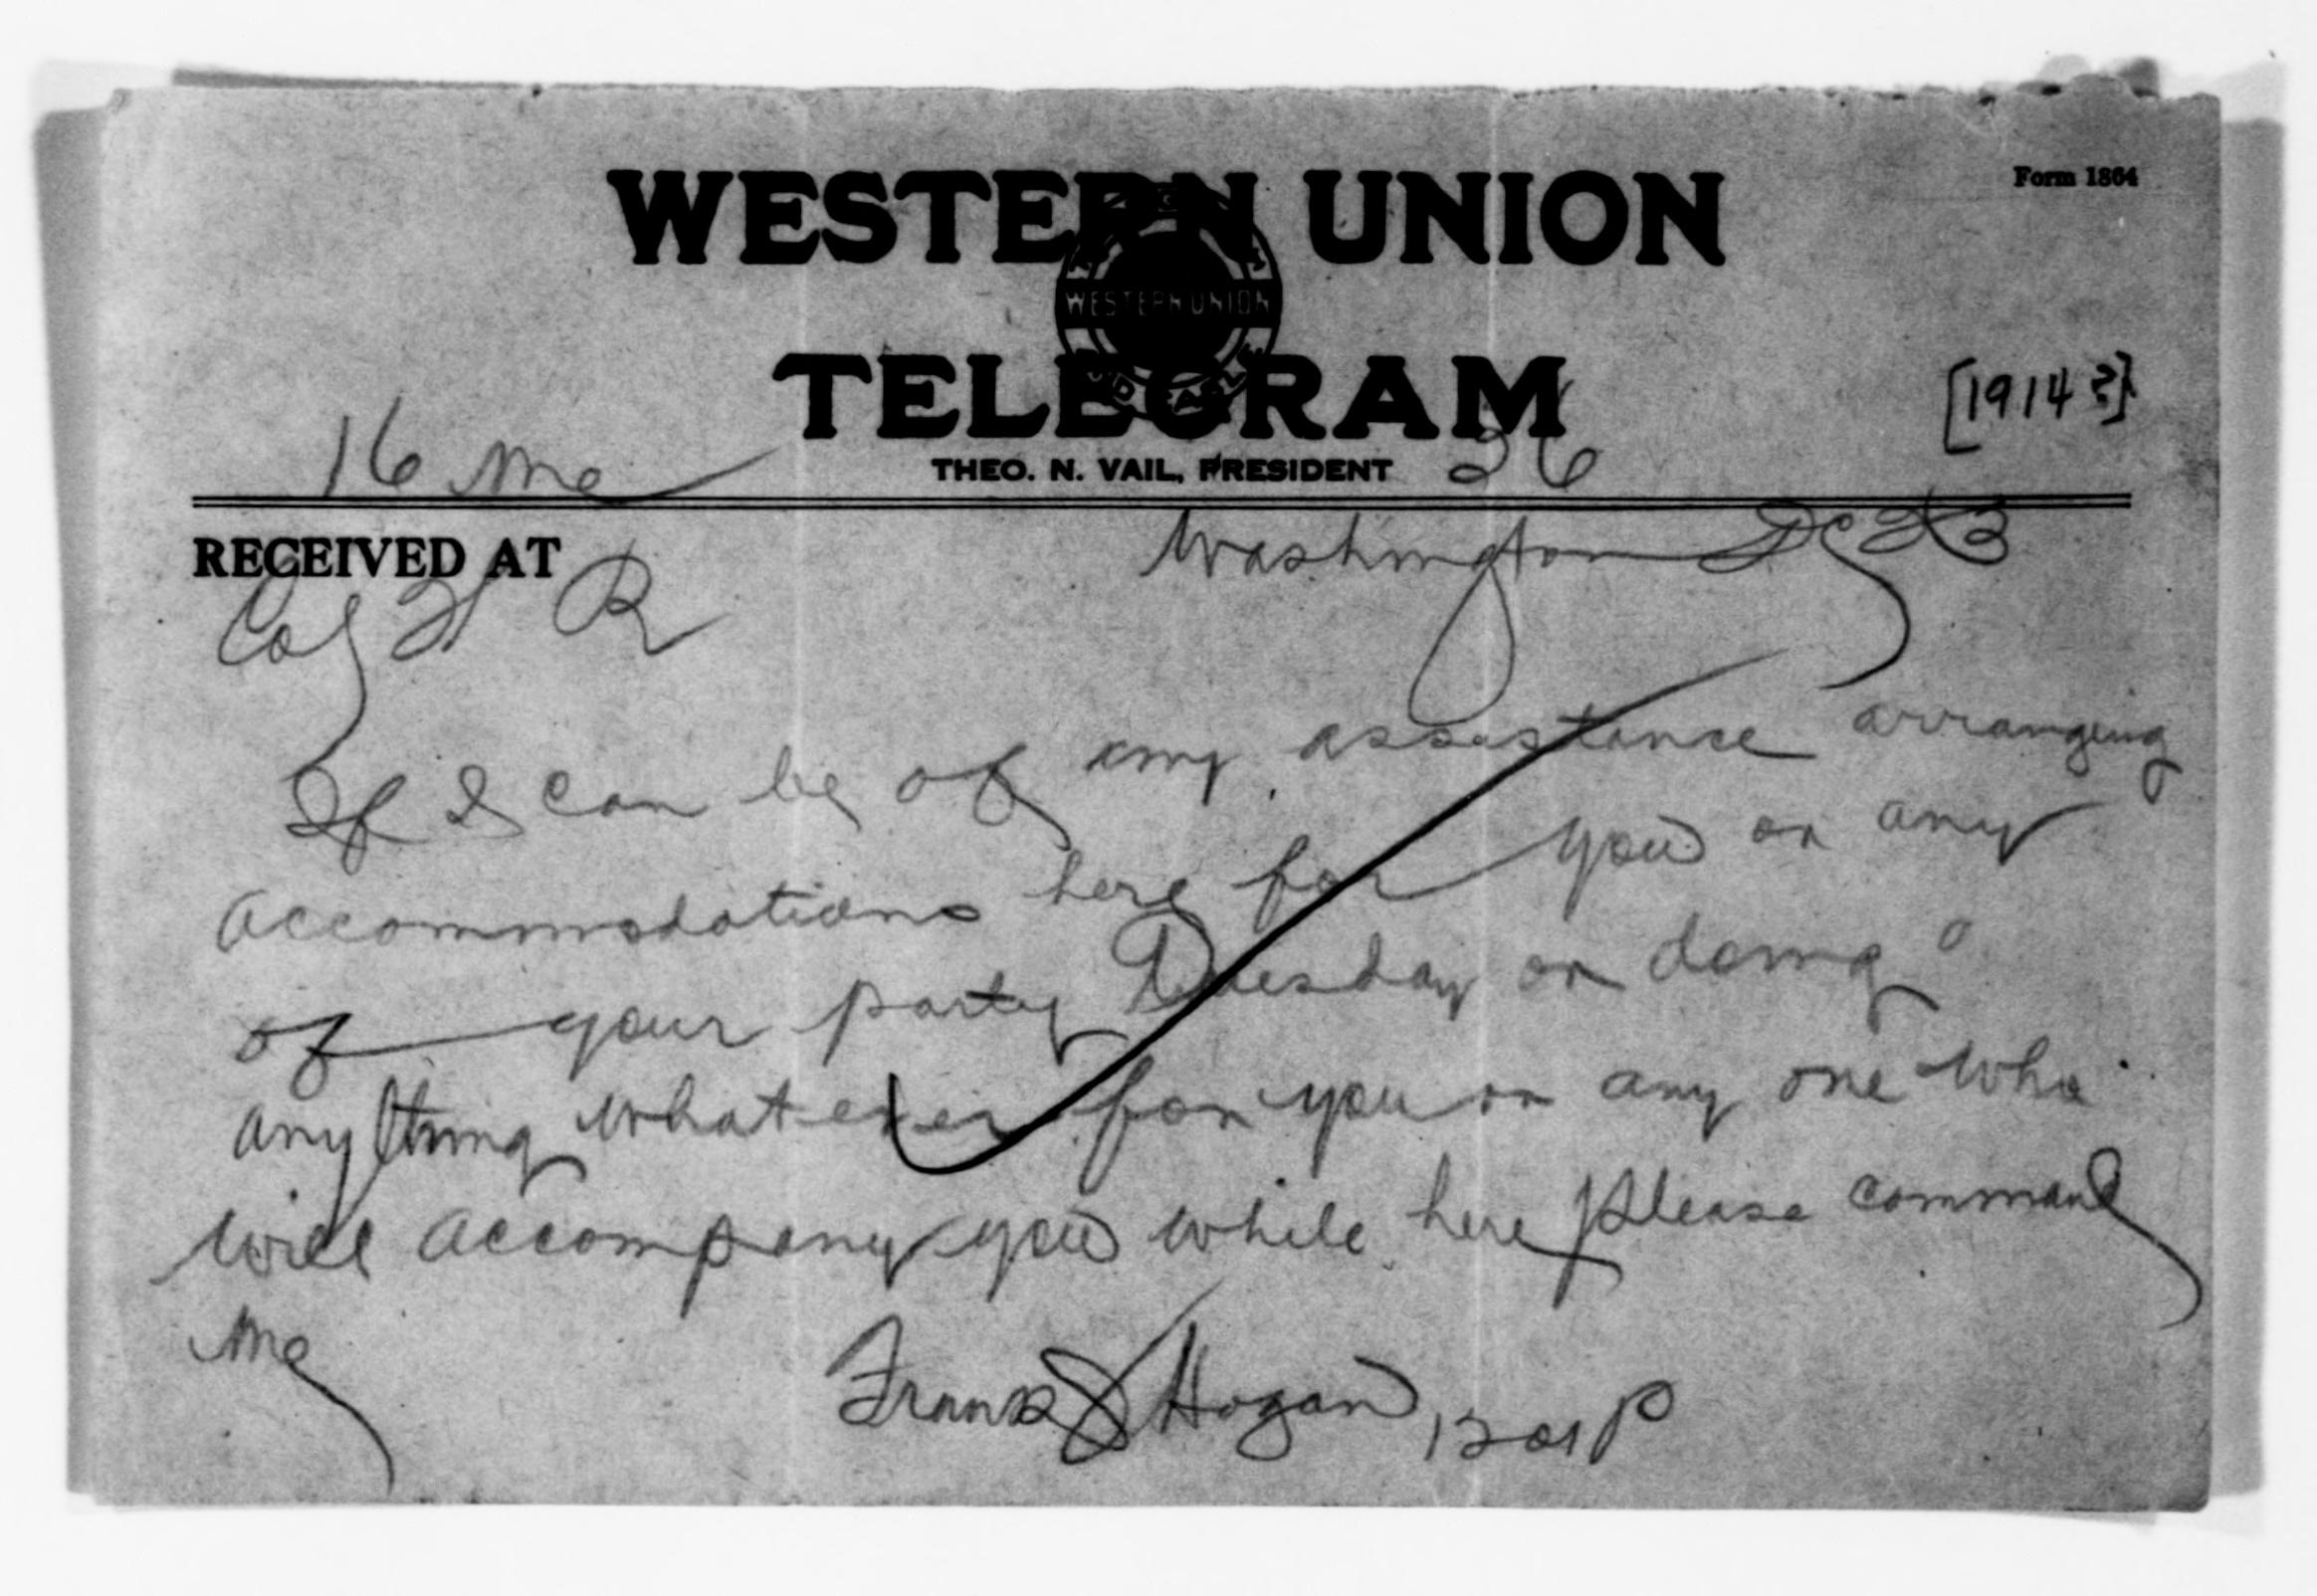 Form 1864
WESTERN UNION
WESTERN UNION
TELEGRAM
[1914?]
THEO. N. VAIL, PRESIDENT
16 Me 26
RECEIVED AT
Washington DC 23
Col T R
If I can be of any assistance arranging
accommodations here for you or any
of your party Tuesday or doing
anything whatever for you or any one who
will accompany you while here please command
me
Frank J Hogan 1201P